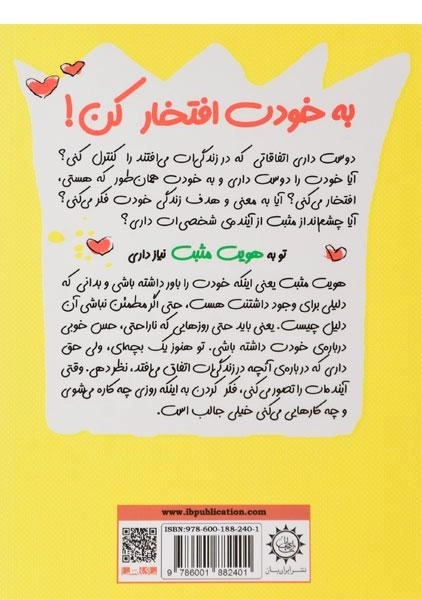 به خودت افتخار کن!
دوست داری اتفاقاتی که در زندگی‌ات می‌افتند را کنترل کنی؟
آیا خودت را دوست داری و به خودت همان‌طور که هستی،
افتخار می‌کنی؟ آیا به معنی و هدف زندگی خودت فکر می‌کنی؟
آیا چشم‌انداز مثبت از آینده‌ی شخصی‌ات داری؟
تو به هویت مثبت نیاز داری
هویت مثبت یعنی اینکه خودت را باور داشته باشی و بدانی که
دلیلی برای وجود داشتنت هست، حتی اگر مطمئن نباشی آن
دلیل چیست. یعنی باید حتی روزهایی که ناراحتی، حس خوبی
درباره‌ی خودت داشته باشی. تو هنوز یک بچه‌ای، ولی حق
داری که درباره‌ی آنچه در زندگی‌ات اتفاق می‌افتد، نظر دهی. وقتی
آینده‌ات را تصور می‌کنی، فکر کردن به اینکه روزی چه کاره می‌شوی
و چه کارهایی می‌کنی خیلی جالب است.
www.ibpublication.com
ISBN:978-600-188-240-1
9 786001 882401
نشر ایران‌بان